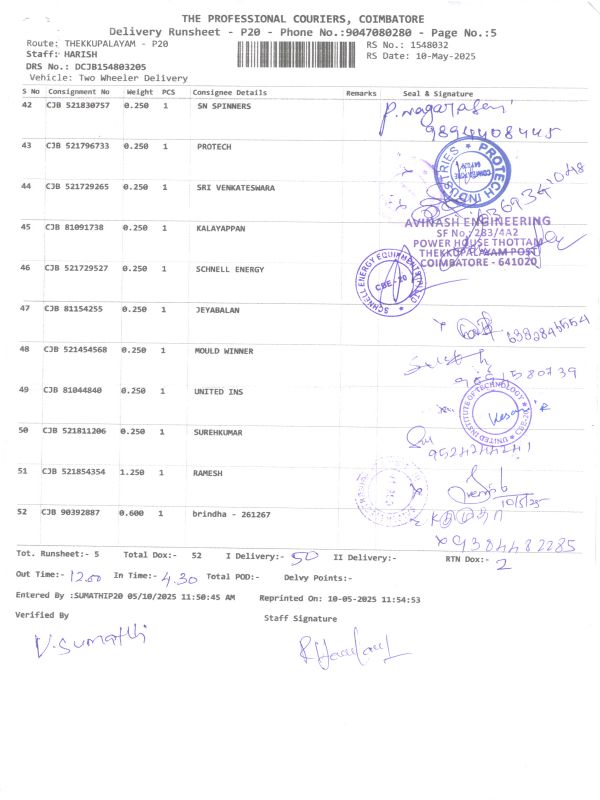 THE PROFESSIONAL COURIERS, COIMBATORE
Delivery Runsheet - P20 - Phone No.:9047080280 - Page No.:5
Route: THEKKUPALAYAM - P20 RS No.: 1548032
Staff: HARISH RS Date: 10-May-2025
DRS No.: DCJB154803205
Vehicle: Two Wheeler Delivery
S No Consignment No Weight PCS Consignee Details Remarks Seal & Signature
42 CJB 521830757 0.250 1 SN SPINNERS
9894408445
43 CJB 521796733 0.250 1 PROTECH
PROTECH INDUSTRIES
44 CJB 521729265 0.250 1 SRI VENKATESWARA
AVINASH ENGINEERING
45 CJB 81091738 0.250 1 KALAYAPPAN
SF No.: 283/4A2
POWER HOUSE THOTTAM
THEKKUPALAYAM POST
COIMBATORE - 641020
46 CJB 521729527 0.250 1 SCHNELL ENERGY
SCHNELL ENERGY EQUIPMENTS
CBE - 20
47 CJB 81154255 0.250 1 JEYABALAN
48 CJB 521454568 0.250 1 MOULD WINNER
49 CJB 81044840 0.250 1 UNITED INS
UNITED INSTITUTE OF TECHNOLOGY CBE-20
50 CJB 521811206 0.250 1 SUREHKUMAR
9524244241
51 CJB 521854354 1.250 1 RAMESH
10/5/25
52 CJB 90392887 0.600 1 brindha - 261267
9384482285
Tot. Runsheet:- 5 Total Dox:- 52 I Delivery:- 50 II Delivery:- RTN Dox:- 2
Out Time:- 12.00 In Time:- 4.30 Total POD:- Delvy Points:-
Entered By :SUMATHIP20 05/10/2025 11:50:45 AM Reprinted On: 10-05-2025 11:54:53
Verified By Staff Signature
V. Sumathi